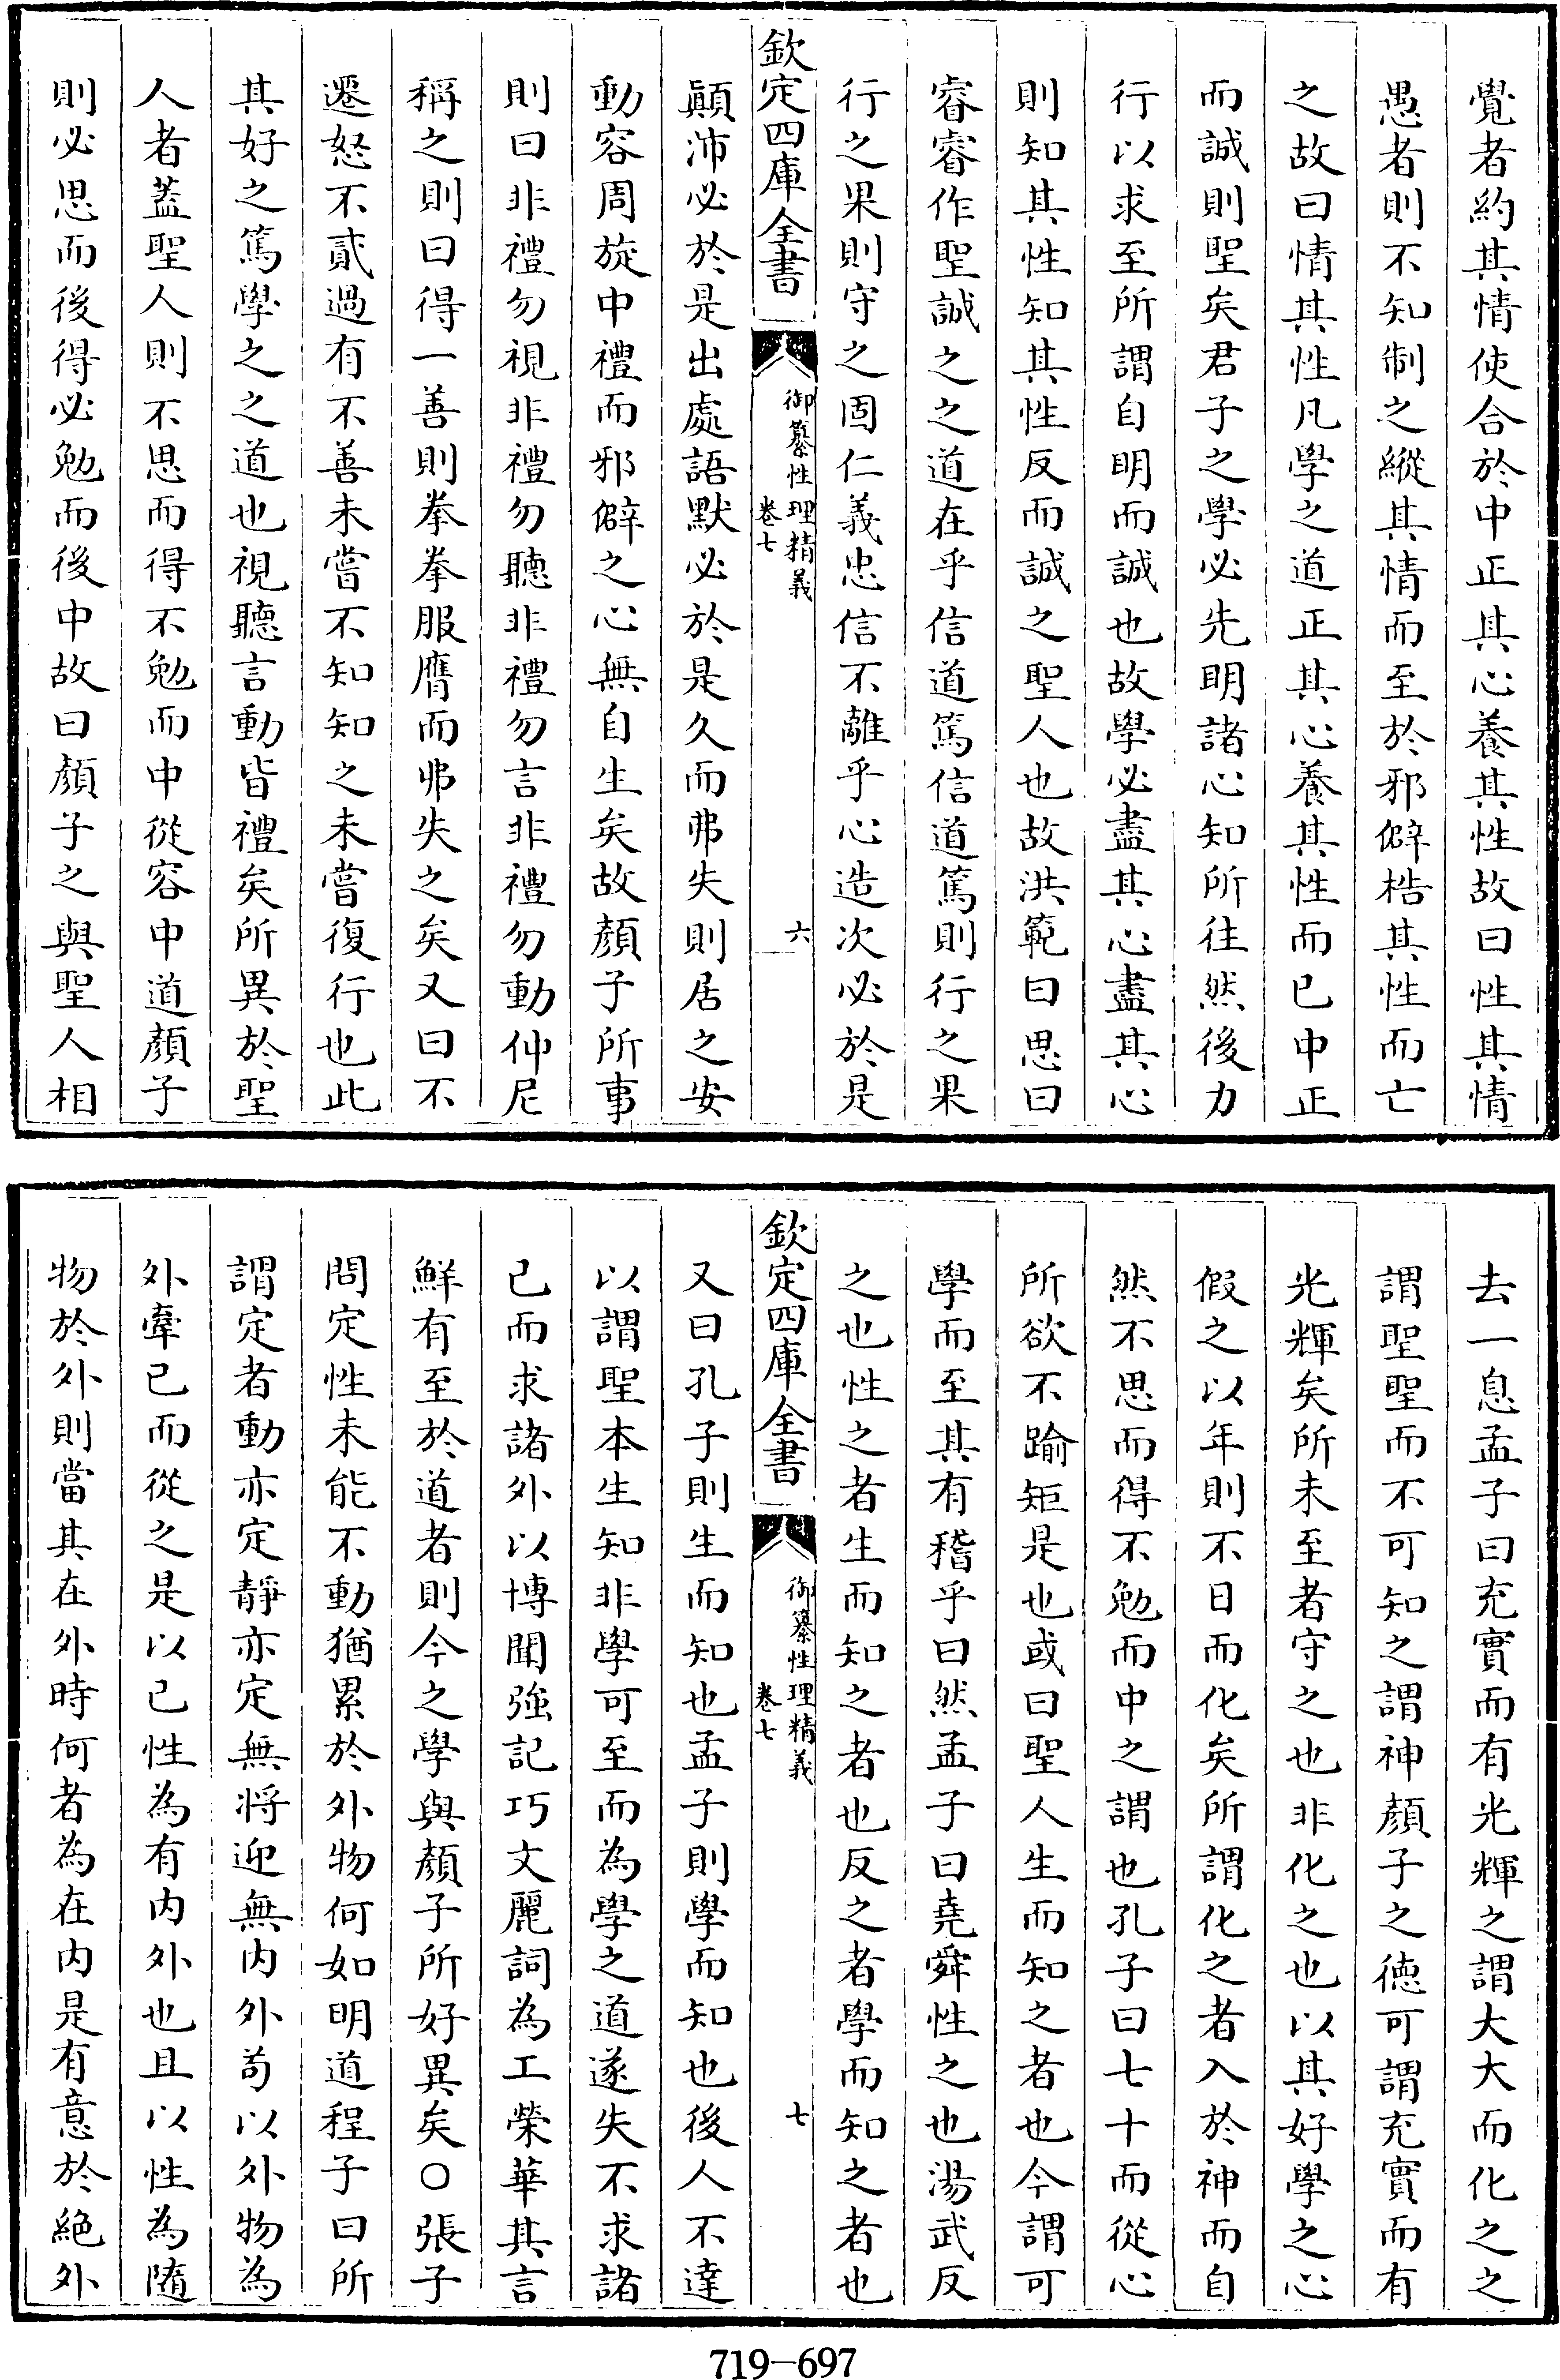 覺者約其情使合於中正其心養其性故曰性其情
愚者則不知制之縱其情而至於邪僻梏其性而亡
之故曰情其性凡學之道正其心養其性而已中正
而誠則聖矣君子之學必先明諸心知所往然後力
行以求至所謂自明而誠也故學必盡其心盡其心
則知其性知其性反而誠之聖人也故洪範曰思曰
睿睿作聖誠之之道在乎信道篤信道篤則行之果
行之果則守之固仁義忠信不離乎心造次必於是
欽定四庫全書
御纂性理精義
卷七
六
顛沛必於是出處語默必於是久而弗失則居之安
動容周旋中禮而邪僻之心無自生矣故顏子所事
則曰非禮勿視非禮勿聽非禮勿言非禮勿動仲尼
稱之則曰得一善則拳拳服膺而弗失之矣又曰不
遷怒不貳過有不善未嘗不知知之未嘗復行也此
其好之篤學之之道也視聽言動皆禮矣所異於聖
人者蓋聖人則不思而得不勉而中從容中道顏子
則必思而後得必勉而後中故曰顏子之與聖人相
去一息孟子曰充實而有光輝之謂大大而化之之
謂聖聖而不可知之謂神顏子之德可謂充實而有
光輝矣所未至者守之也非化之也以其好學之心
假之以年則不日而化矣所謂化之者入於神而自
然不思而得不勉而中之謂也孔子曰七十而從心
所欲不踰矩是也或曰聖人生而知之者也今謂可
學而至其有稽乎曰然孟子曰堯舜性之也湯武反
之也性之者生而知之者也反之者學而知之者也
欽定四庫全書
御纂性理精義
卷七
七
又曰孔子則生而知也孟子則學而知也後人不達
以謂聖本生知非學可至而為學之道遂失不求諸
己而求諸外以博聞強記巧文麗詞為工榮華其言
鮮有至於道者則今之學與顏子所好異矣○張子
問定性未能不動猶累於外物何如明道程子曰所
謂定者動亦定靜亦定無將迎無内外茍以外物為
外牽己而從之是以己性為有内外也且以性為隨
物於外則當其在外時何者為在内是有意於絕外
719-697